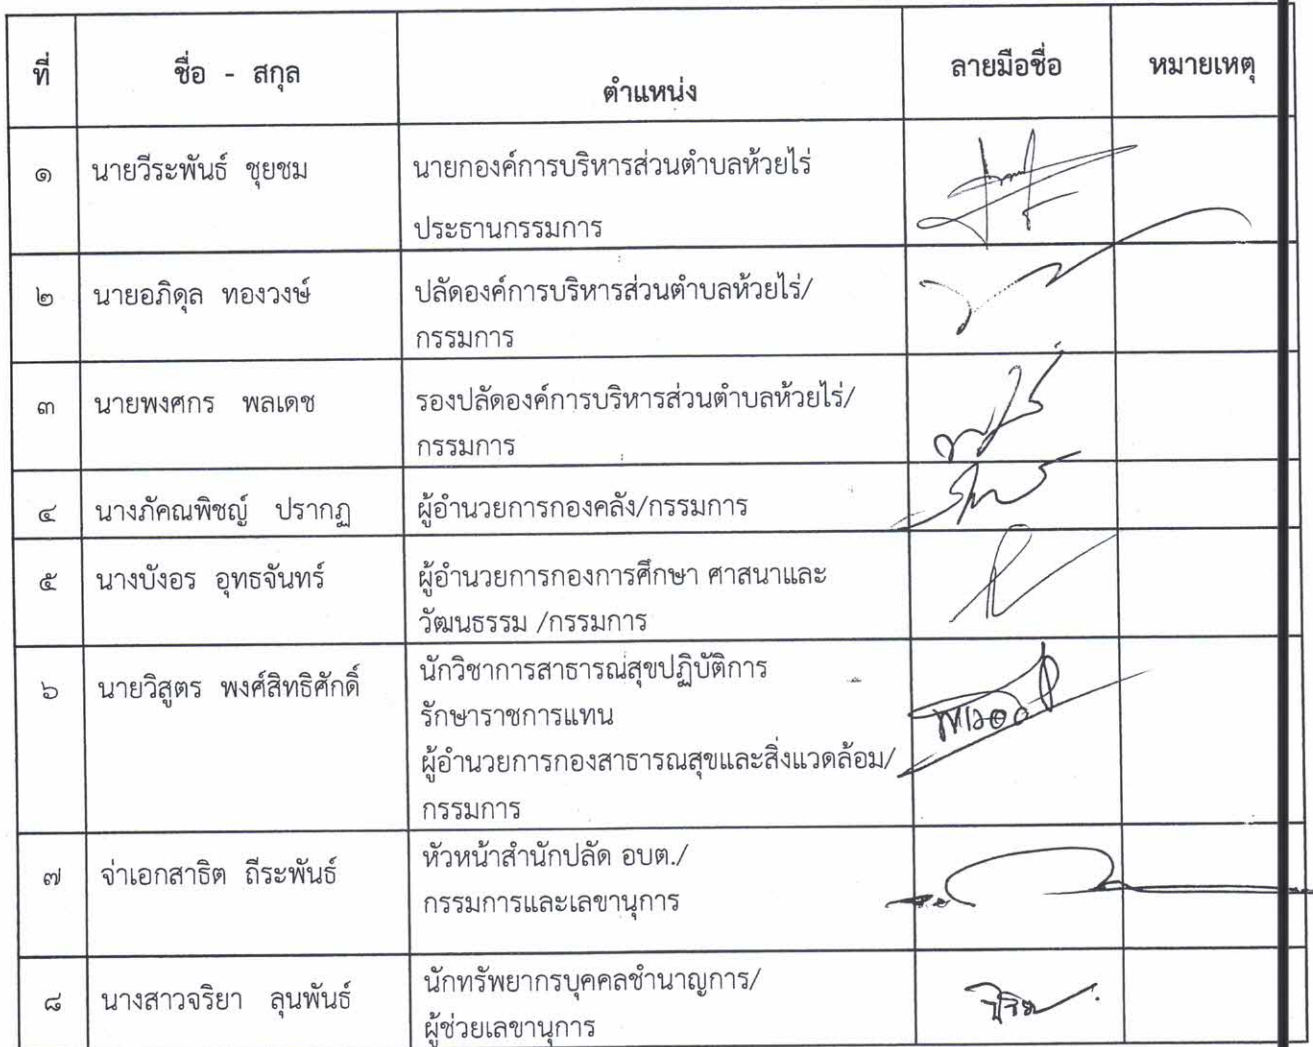 ที่ ชื่อ - สกุล ตำแหน่ง ลายมือชื่อ หมายเหตุ
๑ นายวีระพันธ์ ชุยชม นายกองค์การบริหารส่วนตำบลห้วยไร่
ประธานกรรมการ
๒ นายอภิดุล ทองวงษ์ ปลัดองค์การบริหารส่วนตำบลห้วยไร่/
กรรมการ
๓ นายพงศกร พลเดช รองปลัดองค์การบริหารส่วนตำบลห้วยไร่/
กรรมการ
๔ นางภัคณพิชญ์ ปรากฏ ผู้อำนวยการกองคลัง/กรรมการ
๕ นางบังอร อุทธจันทร์ ผู้อำนวยการกองการศึกษา ศาสนาและ
วัฒนธรรม /กรรมการ
๖ นายวิสูตร พงศ์สิทธิศักดิ์ นักวิชาการสาธารณสุขปฏิบัติการ
รักษาราชการแทน
ผู้อำนวยการกองสาธารณสุขและสิ่งแวดล้อม/
กรรมการ
๗ จ่าเอกสาธิต ถีระพันธ์ หัวหน้าสำนักปลัด อบต./
กรรมการและเลขานุการ
๘ นางสาวจริยา ลุนพันธ์ นักทรัพยากรบุคคลชำนาญการ/
ผู้ช่วยเลขานุการ